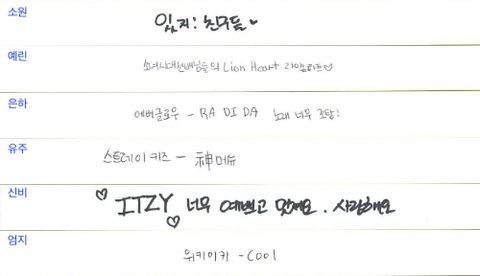 소원
있지: 친구들♥
예린
소녀시대선배님들의 Lion Heart 라이온하트♡
은하
에버글로우 - RA DI DA 노래 너무 조탕!
유주
스트레이 키즈 - 神메뉴
신비
♡ ITZY 너무 예쁘고 멋져요. 사랑해요 ♡
엄지
위키미키 - COOL